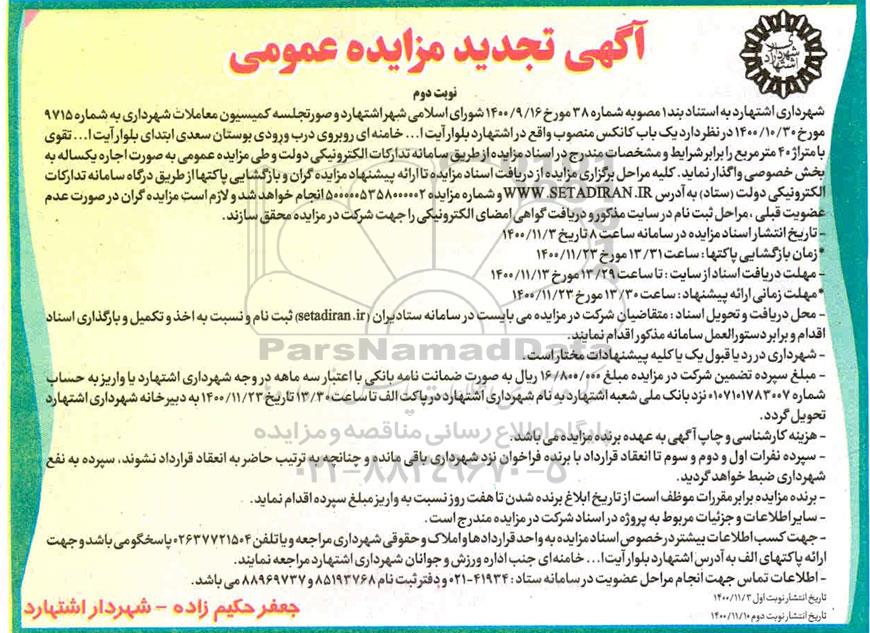 شهرداری اشتهارد
آگهی تجدید مزایده عمومی
نوبت دوم
شهرداری اشتهارد به استناد بند ۱ مصوبه شماره ۳۸ مورخ ۱۴۰۰/۹/۱۶ شورای اسلامی شهر اشتهارد و صورتجلسه کمیسیون معاملات شهرداری به شماره ۹۷۱۵
مورخ ۱۴۰۰/۱۰/۳۰ در نظر دارد یک باب کانکس منصوب واقع در اشتهارد بلوار آیت ا... خامنه ای روبروی درب ورودی بوستان سعدی ابتدای بلوار آیت ا... تقوی
با متراژ ۴۰ متر مربع را برابر شرایط و مشخصات مندرج در اسناد مزایده از طریق سامانه تدارکات الکترونیکی دولت و طی مزایده عمومی به صورت اجاره یکساله به
بخش خصوصی واگذار نماید. کلیه مراحل برگزاری مزایده از دریافت اسناد مزایده تا ارائه پیشنهاد مزایده گران و بازگشایی پاکتها از طریق درگاه سامانه تدارکات
الکترونیکی دولت (ستاد) به آدرس WWW.SETADIRAN.IR و شماره مزایده ۵۰۰۰۰۰۵۳۵۸۰۰۰۰۰۲ انجام خواهد شد و لازم است مزایده گران در صورت عدم
عضویت قبلی ، مراحل ثبت نام در سایت مذکور و دریافت گواهی امضای الکترونیکی را جهت شرکت در مزایده محقق سازند.
- تاریخ انتشار اسناد مزایده در سامانه ساعت ۸ تاریخ ۱۴۰۰/۱۱/۳
*زمان بازگشایی پاکتها : ساعت ۱۳/۳۱ مورخ ۱۴۰۰/۱۱/۲۳
- مهلت دریافت اسناد از سایت : تا ساعت ۱۳/۲۹ مورخ ۱۴۰۰/۱۱/۱۳
*مهلت زمانی ارائه پیشنهاد : ساعت ۱۳/۳۰ مورخ ۱۴۰۰/۱۱/۲۳
- محل دریافت و تحویل اسناد : متقاضیان شرکت در مزایده می بایست در سامانه ستادیران (setadiran.ir) ثبت نام و نسبت به اخذ و تکمیل و بارگذاری اسناد
اقدام و برابر دستورالعمل سامانه مذکور اقدام نمایند.
- شهرداری در رد یا قبول یک یا کلیه پیشنهادات مختار است.
- مبلغ سپرده تضمین شرکت در مزایده مبلغ ۱۶/۸۰۰/۰۰۰ ریال به صورت ضمانت نامه بانکی با اعتبار سه ماهه در وجه شهرداری اشتهارد یا واریز به حساب
شماره ۰۱۰۷۱۰۱۷۸۳۰۰۷ نزد بانک ملی شعبه اشتهارد به نام شهرداری اشتهارد در پاکت الف تا ساعت ۱۳/۳۰ تاریخ ۱۴۰۰/۱۱/۲۳ به دبیرخانه شهرداری اشتهارد
تحویل گردد.
- هزینه کارشناسی و چاپ آگهی به عهده برنده مزایده می باشد.
- سپرده نفرات اول و دوم و سوم تا انعقاد قرارداد با برنده فراخوان نزد شهرداری باقی مانده و چنانچه به ترتیب حاضر به انعقاد قرارداد نشوند، سپرده به نفع
شهرداری ضبط خواهد گردید.
- برنده مزایده برابر مقررات موظف است از تاریخ ابلاغ برنده شدن تا هفت روز نسبت به واریز مبلغ سپرده اقدام نماید.
- سایر اطلاعات و جزئیات مربوط به پروژه در اسناد شرکت در مزایده مندرج است.
- جهت کسب اطلاعات بیشتر در خصوص اسناد مزایده به واحد قراردادها و املاک و حقوقی شهرداری مراجعه و یا تلفن ۰۲۶۳۷۷۲۱۵۰۴ پاسخگو می باشد و جهت
ارائه پاکتهای الف به آدرس اشتهارد بلوار آیت ا... خامنه ای جنب اداره ورزش و جوانان شهرداری اشتهارد مراجعه نمایند.
- اطلاعات تماس جهت انجام مراحل عضویت در سامانه ستاد : ۴۱۹۳۴-۰۲۱ و دفتر ثبت نام ۸۵۱۹۳۷۶۸ و ۸۸۹۶۹۷۳۷ می باشد.
تاریخ انتشار نوبت اول ۱۴۰۰/۱۱/۳
تاریخ انتشار نوبت دوم ۱۴۰۰/۱۱/۱۰
جعفر حکیم زاده - شهردار اشتهارد
ParsNamadData
پایگاه اطلاع رسانی مناقصه و مزایده
۰۲۱-۸۸۳۴۹۶۷۰-۵